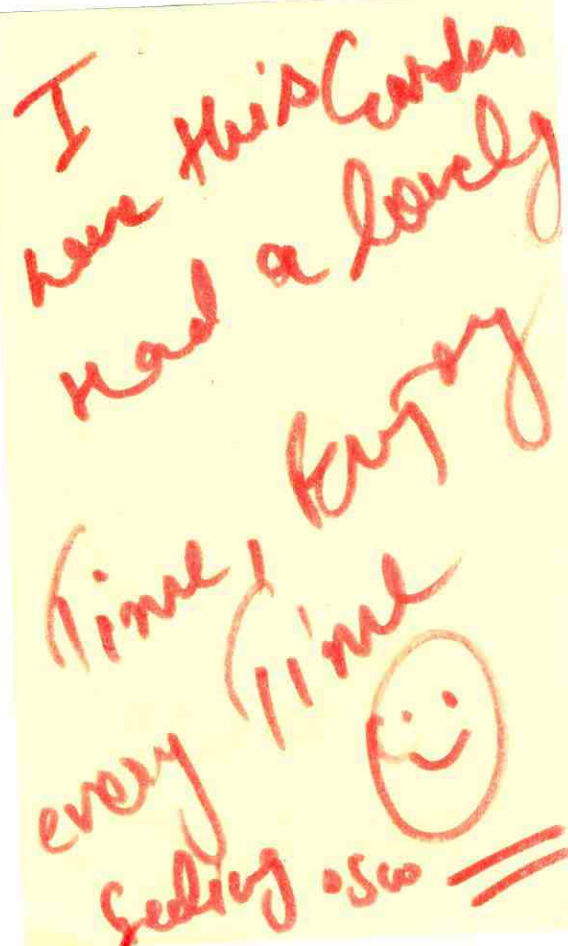 I
love this Garden
Had a lovely
Time, Enjoy
every Time